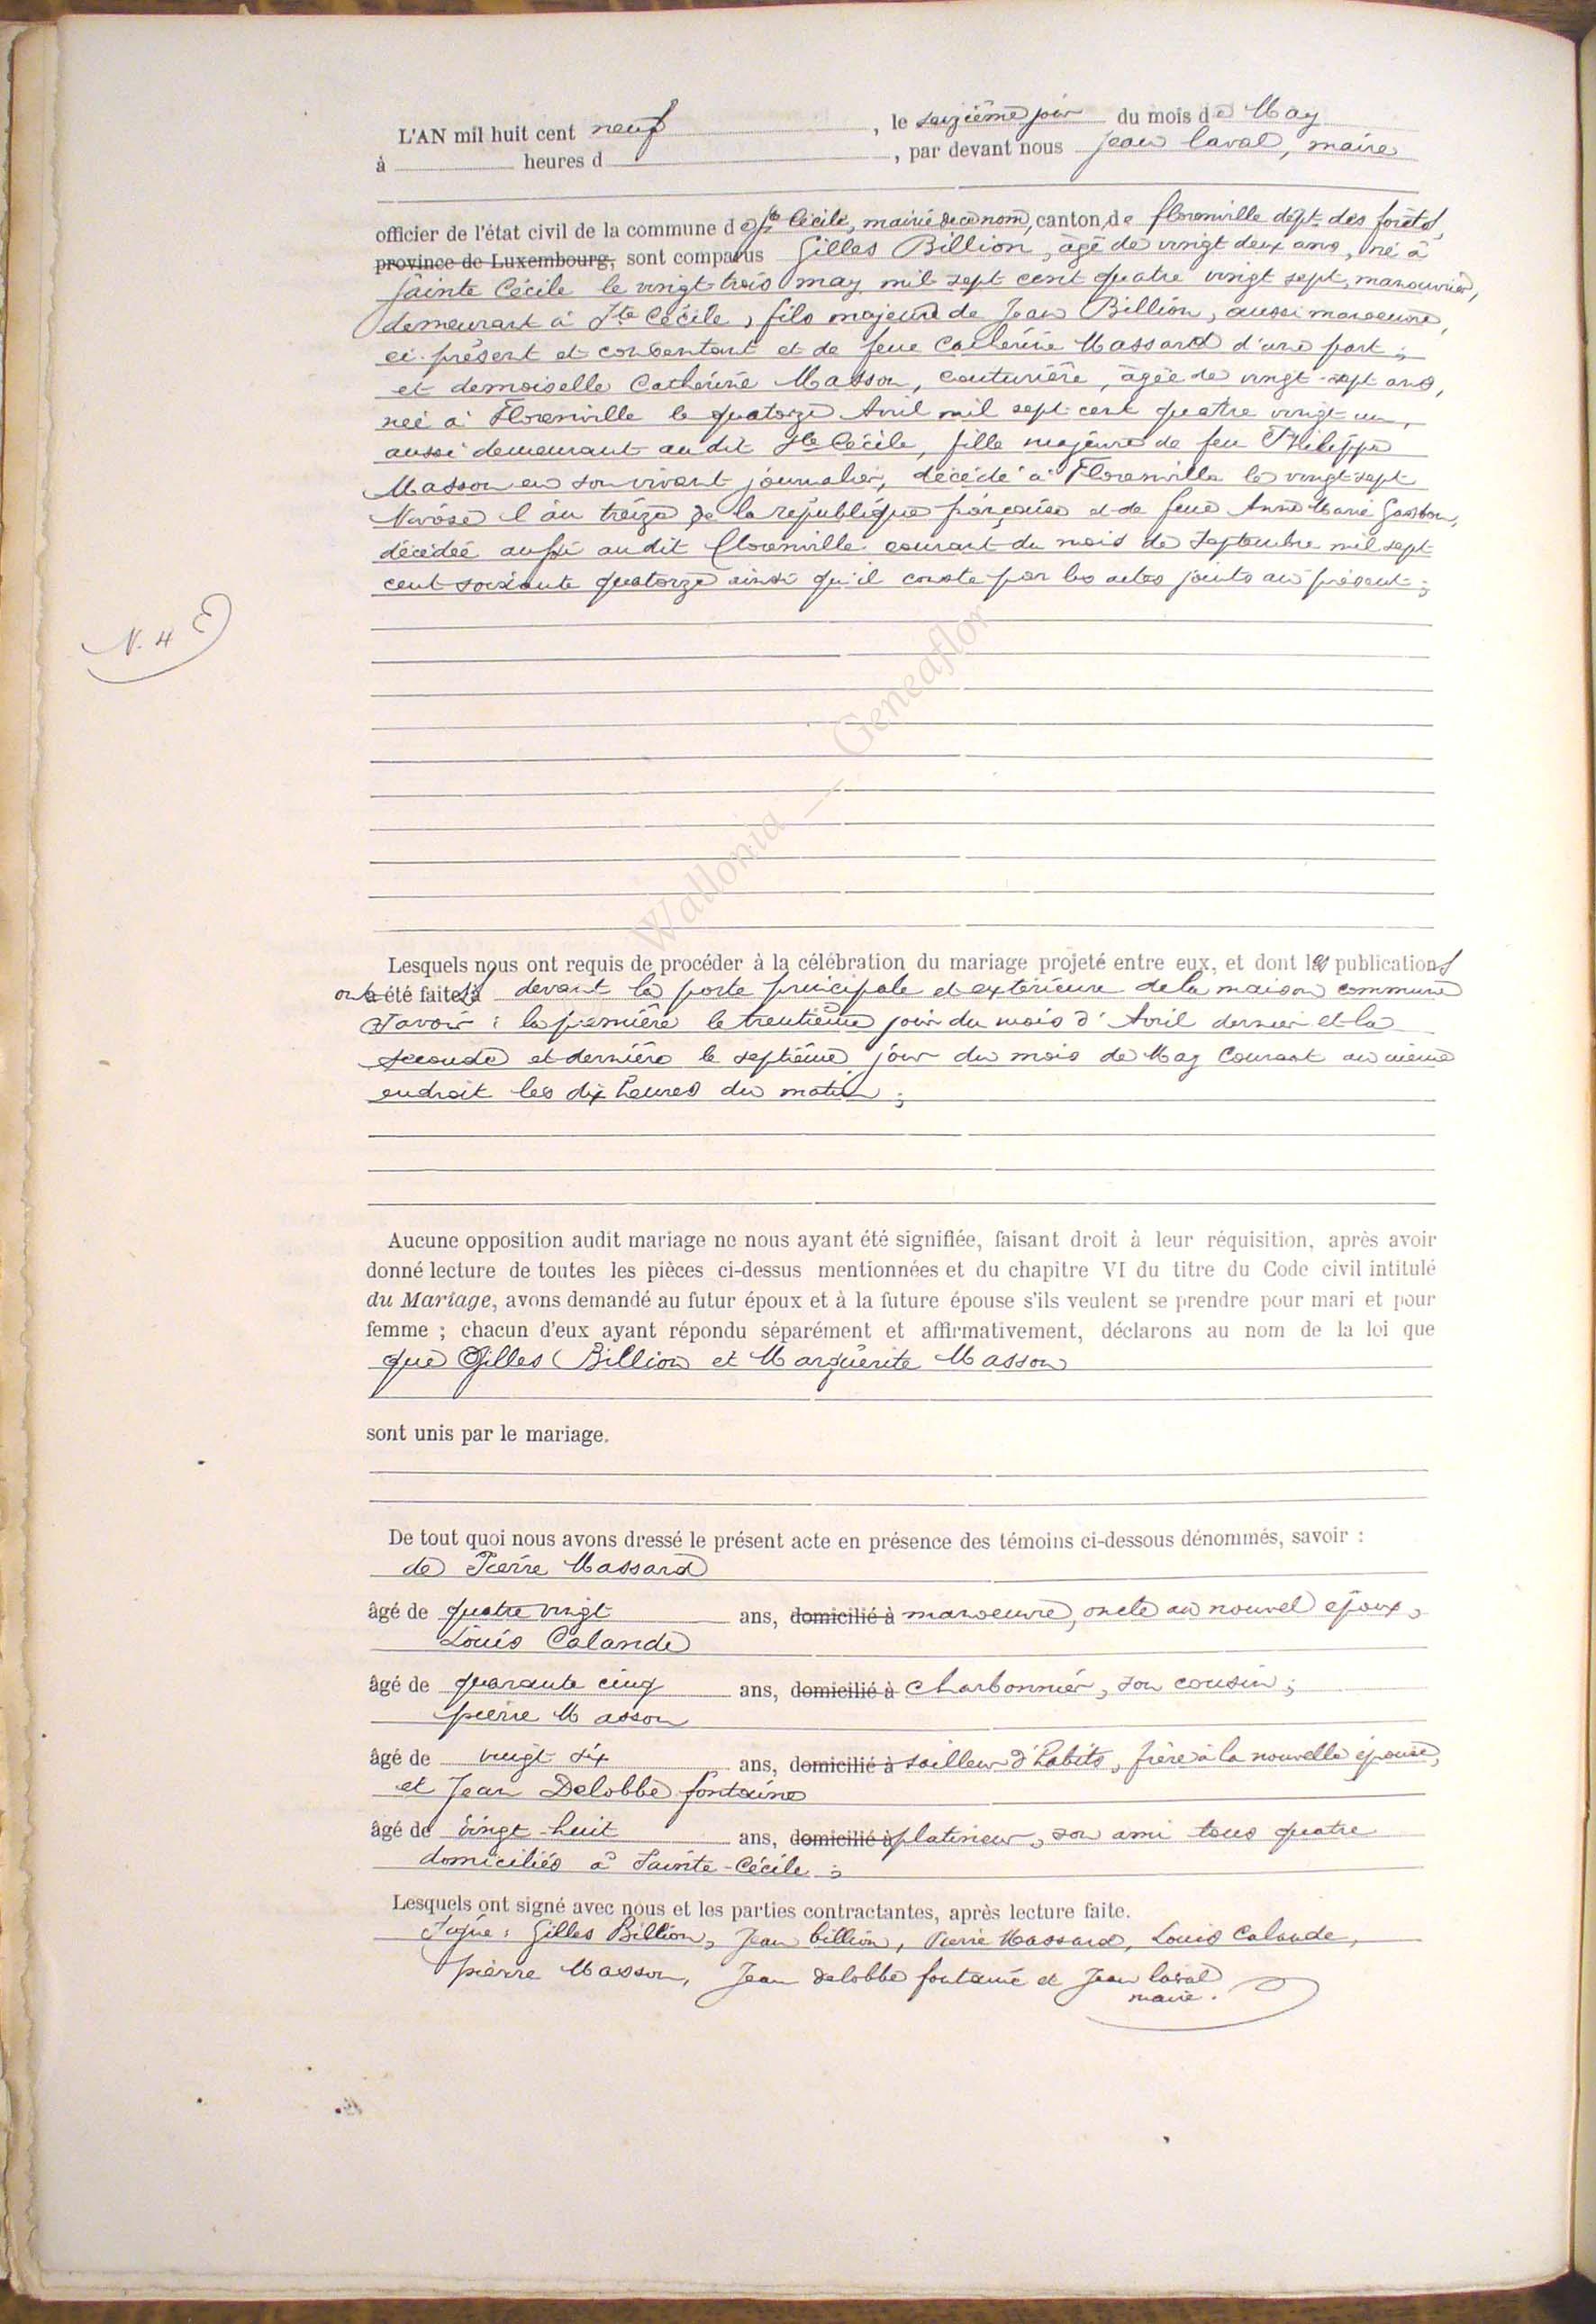 L'AN mil huit cent neuf, le seizième jour du mois de May
à heures d , par devant nous jean laval, maire
officier de l'état civil de la commune de Ste Cécile, mairie de ce nom, canton de florenville dépt. des forêts,
province de Luxembourg, sont comparus Gilles Billion, âgé de vingt deux ans, né à
Sainte Cécile le vingt-trois may mil sept cent quatre vingt sept, manouvrier,
demeurant à Ste Cécile, fils majeure de Jean Billion, aussi manoeuvre,
ci-présent et consentant et de feue Catherine Massard d'une part;
et demoiselle Catherine Masson, couturière, âgée de vingt-sept ans,
née à Florenville le quatorze Avril mil sept cent quatre vingt un,
aussi demeurant au dit Ste Cécile, fille majeure de feu Philippe
Masson en son vivant journalier, décédé à Florenville le vingt-sept
Nivôse l'an treize de la république française et de feue Anne Marie
décédée aussi au dit Florenville courant du mois de Septembre mil sept
cent soixante quatorze ainsi qu'il conste par les actes joints au présent;
N. 4
Wallonia — Geneaflor
Lesquels nous ont requis de procéder à la célébration du mariage projeté entre eux, et dont les publications
ont été faites à devant la porte principale et extérieure de la maison commune
Savoir : la première le trentième jour du mois d'Avril dernier et la
seconde et dernière le septième jour du mois de May Courant au même
endroit les dix heures du matin;
Aucune opposition audit mariage ne nous ayant été signifiée, faisant droit à leur réquisition, après avoir
donné lecture de toutes les pièces ci-dessus mentionnées et du chapitre VI du titre du Code civil intitulé
du Mariage, avons demandé au futur époux et à la future épouse s'ils veulent se prendre pour mari et pour
femme ; chacun d'eux ayant répondu séparément et affirmativement, déclarons au nom de la loi que
que Gilles Billion et Marguerite Masson
sont unis par le mariage.
De tout quoi nous avons dressé le présent acte en présence des témoins ci-dessous dénommés, savoir :
de Pierre Massard
âgé de quatre vingt ans, domicilié à manoeuvre, oncle au nouvel époux,
Louis Calande
âgé de quarante cinq ans, domicilié à Charbonnier, son cousin;
pierre Masson
âgé de vingt six ans, domicilié à tailleur d'habits, frère à la nouvelle épouse,
et Jean Delobbe fontaine
âgé de vingt-huit ans, domicilié à platineur, son ami tous quatre
domiciliés à Sainte-Cécile;
Lesquels ont signé avec nous et les parties contractantes, après lecture faite.
Signé : Gilles Billion, Jean billion, Pierre Massard, Louis Calande,
pierre Masson, Jean delobbe fontaine et Jean laval
maire.